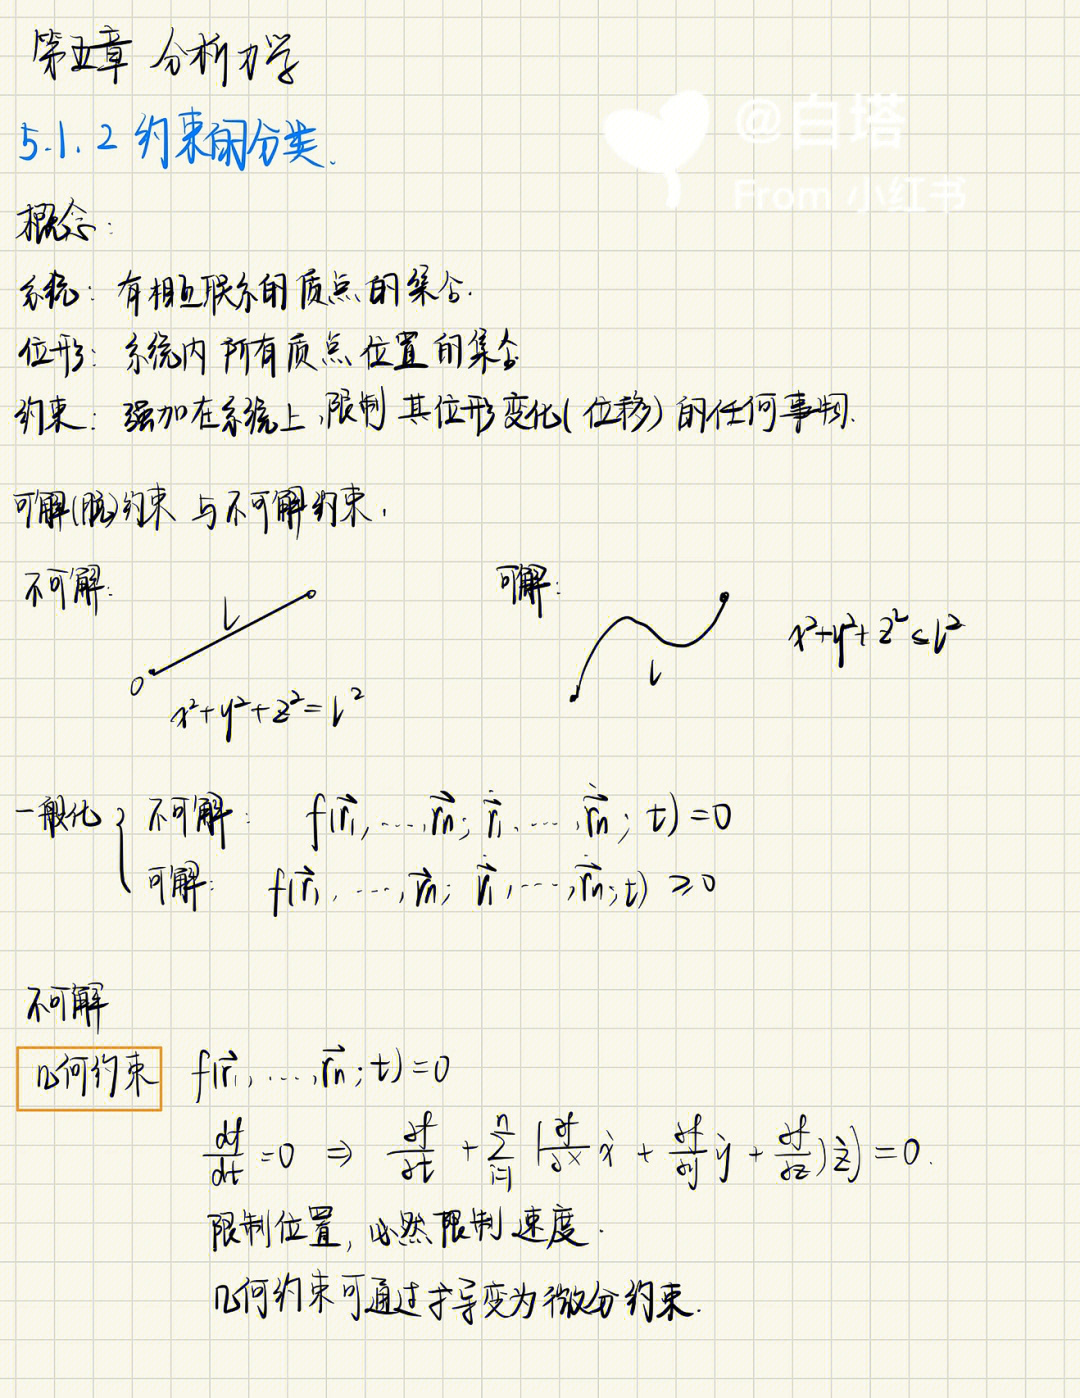 第五章 分析力学
@白塔
From 小红书
5.1.2 约束的分类.
概念:
系统: 有相互联系的质点的集合.
位形: 系统内所有质点位置的集合
约束: 强加在系统上,限制其位形变化(位移)的任何事物.
可解(脱)约束与不可解约束.
不可解:
L
O
x²+y²+z²=l²
可解:
L
x²+y²+z²≤l²
一般化 { 不可解: f(r⃗₁,…,r⃗n; ṙ⃗₁,…,ṙ⃗n; t)=0
可解: f(r⃗₁,…,r⃗n; ṙ⃗₁,…,ṙ⃗n; t) ≥0
不可解
几何约束 f(r⃗₁,…,r⃗n; t)=0
df/dt =0 ⇒ ∂f/∂t + Σⁿᵢ₌₁ (∂f/∂x ẋ + ∂f/∂y ẏ + ∂f/∂z) ż) =0.
限制位置,必然限制速度.
几何约束可通过求导变为微分约束.